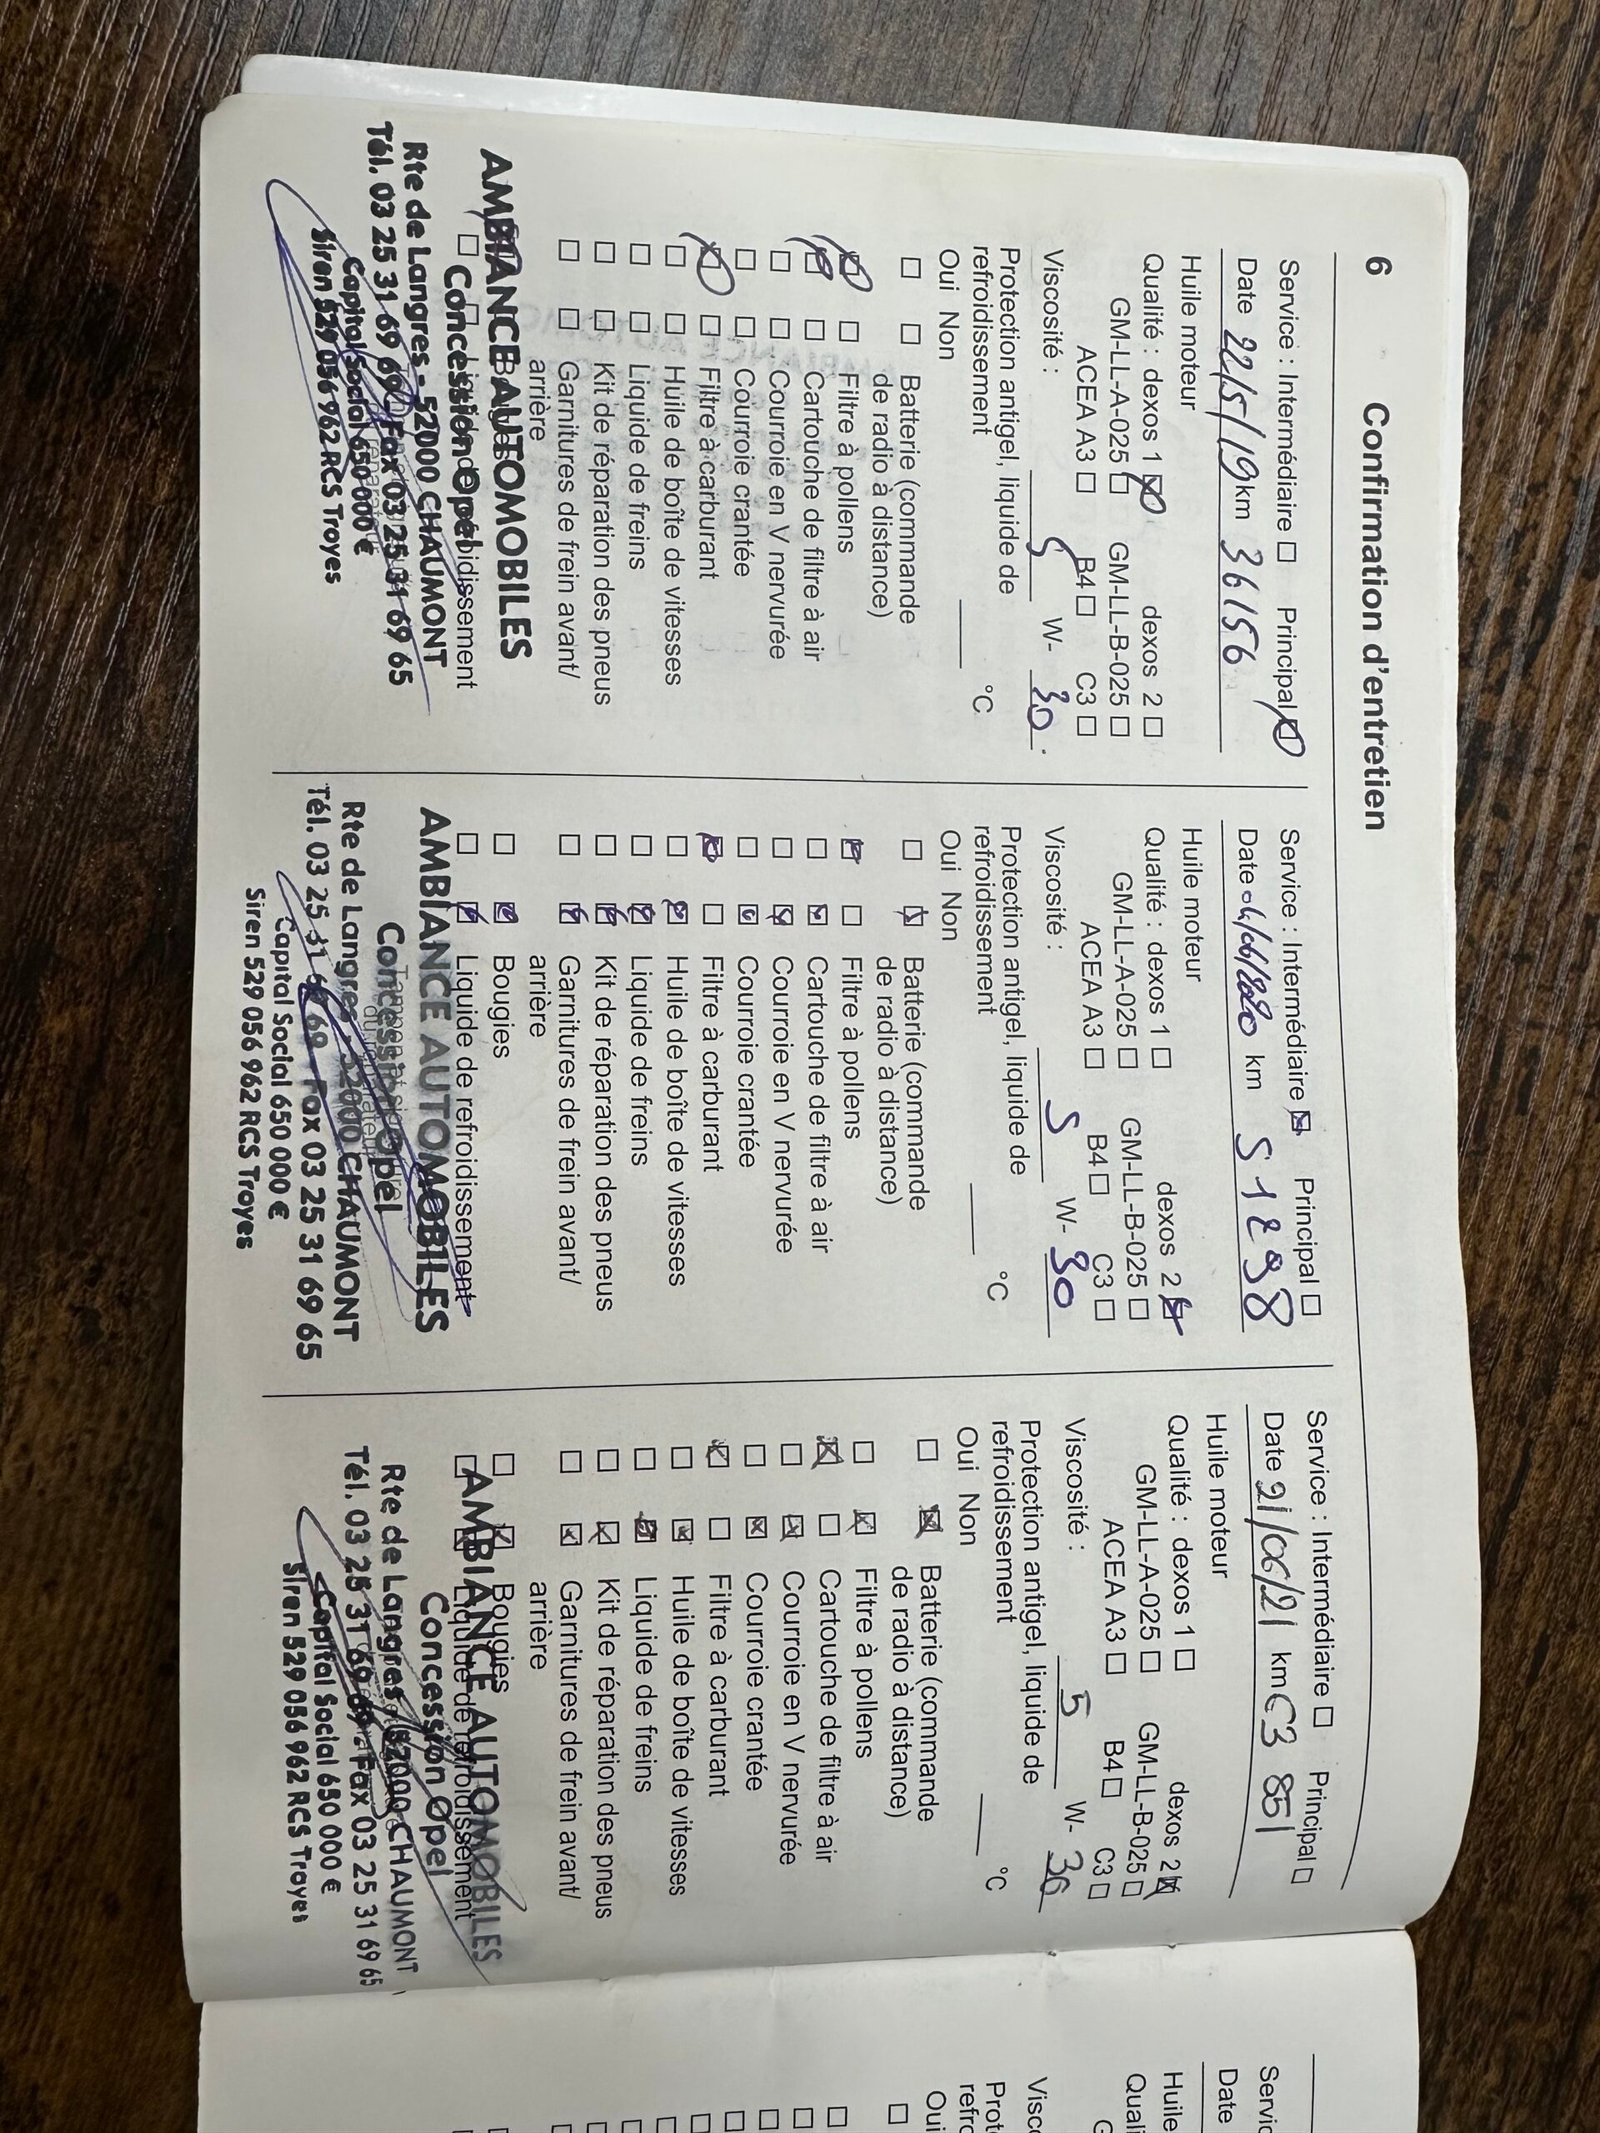 6 Confirmation d'entretien
Service : Intermédiaire □ Principal ☒
Date 22/5/19 km 36156
Huile moteur
Qualité : dexos 1 ☒ dexos 2 □
GM-LL-A-025 □ GM-LL-B-025 □
ACEA A3 □ B4 □ C3 □
Viscosité : 5 W- 30
Protection antigel, liquide de
refroidissement ___ °C
Oui Non
□ □ Batterie (commande
de radio à distance)
☒ □ Filtre à pollens
☒ □ Cartouche de filtre à air
□ □ Courroie en V nervurée
□ □ Courroie crantée
☒ □ Filtre à carburant
□ □ Huile de boîte de vitesses
□ □ Liquide de freins
□ □ Kit de réparation des pneus
□ □ Garnitures de frein avant/
arrière
AMBIANCE AUTOMOBILES
Concession Opel
Rte de Langres - 52000 CHAUMONT
Tél. 03 25 31 69 69 - Fax 03 25 31 69 65
Capital Social 650 000 €
Siren 529 056 962 RCS Troyes
Service : Intermédiaire ☒ Principal □
Date km 51298
Huile moteur
Qualité : dexos 1 □ dexos 2 ☒
GM-LL-A-025 □ GM-LL-B-025 □
ACEA A3 □ B4 □ C3 □
Viscosité : 5 W- 30
Protection antigel, liquide de
refroidissement ___ °C
Oui Non
□ ☒ Batterie (commande
de radio à distance)
☒ □ Filtre à pollens
□ ☒ Cartouche de filtre à air
□ ☒ Courroie en V nervurée
□ ☒ Courroie crantée
☒ □ Filtre à carburant
□ ☒ Huile de boîte de vitesses
□ ☒ Liquide de freins
□ ☒ Kit de réparation des pneus
□ ☒ Garnitures de frein avant/
arrière
□ ☒ Bougies
□ ☒ Liquide de refroidissement
AMBIANCE AUTOMOBILES
Concession Opel
Rte de Langres - 52000 CHAUMONT
Tél. 03 25 31 69 69 - Fax 03 25 31 69 65
Capital Social 650 000 €
Siren 529 056 962 RCS Troyes
Service : Intermédiaire □ Principal □
Date 21/06/21 km 63 851
Huile moteur
Qualité : dexos 1 □ dexos 2 ☒
GM-LL-A-025 □ GM-LL-B-025 □
ACEA A3 □ B4 □ C3 □
Viscosité : 5 W- 30
Protection antigel, liquide de
refroidissement ___ °C
Oui Non
□ ☒ Batterie (commande
de radio à distance)
□ ☒ Filtre à pollens
☒ □ Cartouche de filtre à air
□ ☒ Courroie en V nervurée
□ ☒ Courroie crantée
☒ □ Filtre à carburant
□ ☒ Huile de boîte de vitesses
□ ☒ Liquide de freins
□ ☒ Kit de réparation des pneus
□ ☒ Garnitures de frein avant/
arrière
□ ☒ Bougies
□ ☒ Liquide de refroidissement
AMBIANCE AUTOMOBILES
Concession Opel
Rte de Langres - 52000 CHAUMONT
Tél. 03 25 31 69 69 - Fax 03 25 31 69 65
Capital Social 650 000 €
Siren 529 056 962 RCS Troyes
Date
Huile
Oui